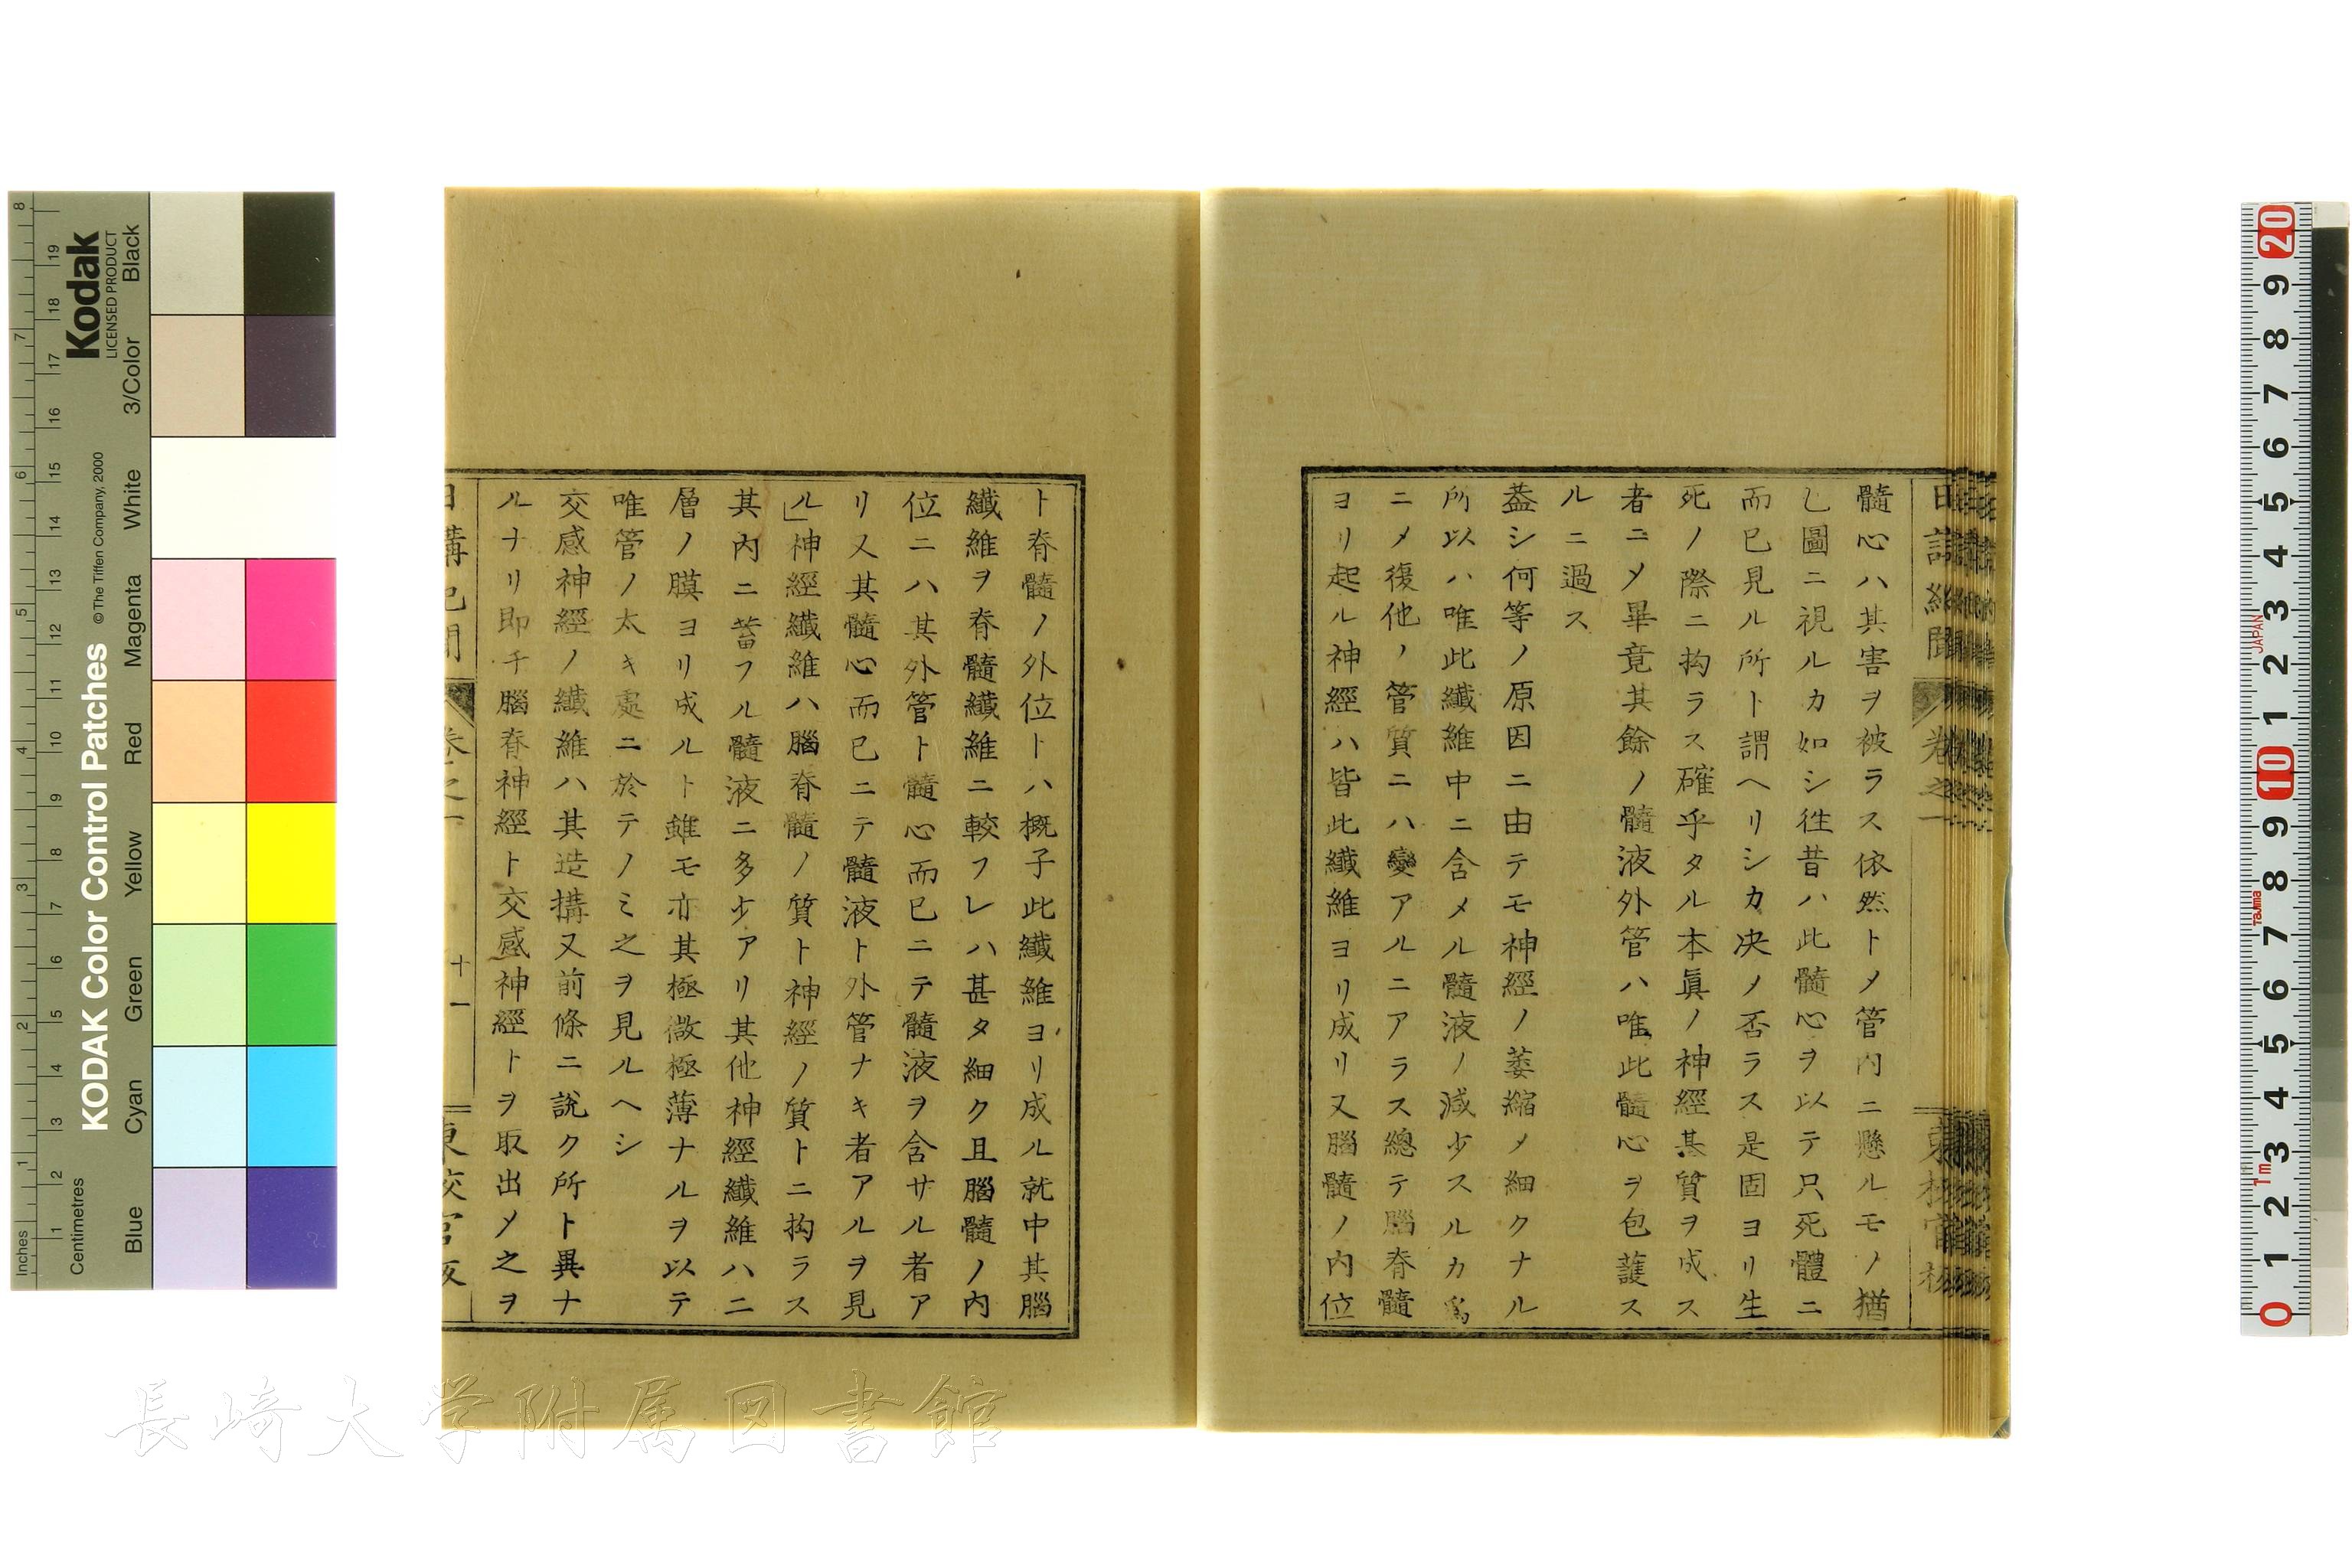 髓心ハ其害ヲ被ラス依然トメ管内ニ懸ルモノ猶
乄圖ニ視ルカ如シ徃昔ハ此髓心ヲ以テ只死體ニ
而已見ル所ト謂ヘリシカ决ノ否ラス是固ヨリ生
死ノ際ニ拘ラス確乎タル本眞ノ神經基質ヲ成ス
者ニメ畢竟其餘ノ髓液外管ハ唯此髓心ヲ包護ス
ルニ過ス
葢シ何等ノ原因ニ由テモ神經ノ萎縮メ細クナル
所以ハ唯此纎維中ニ含メル髓液ノ減少スルカ爲
ニメ復他ノ管質ニハ變アルニアラス總テ腦脊髓
ヨリ起ル神經ハ皆此纎維ヨリ成リ又腦髓ノ内位
ト脊髓ノ外位トハ概子此纎維ヨリ成ル就中其腦
纎維ヲ脊髓纎維ニ較フレハ甚タ細ク且腦髓ノ内
位ニハ其外管ト髓心而已ニテ髓液ヲ含サル者ア
リ又其髓心而已ニテ髓液ト外管ナキ者アルヲ見
ル」神經纎維ハ腦脊髓ノ質ト神經ノ質トニ拘ラス
其内ニ蓄フル髓液ニ多少アリ其他神經纎維ハ二
層ノ膜ヨリ成ルト雖モ亦其極微極薄ナルヲ以テ
唯管ノ太キ處ニ於テノミ之ヲ見ルヘシ
交感神經ノ纎維ハ其造搆又前條ニ說ク所ト異ナ
ルナリ即チ腦脊神經ト交感神經トヲ取出メ之ヲ
日講記聞 卷之一 十一 東校官版
長崎大学附属図書館
KODAK Color Control Patches
© The Tiffen Company, 2000
Kodak
LICENSED PRODUCT
Inches
Centimetres
Blue
Cyan
Green
Yellow
Red
Magenta
White
3/Color
Black
JAPAN
Tajima
1m